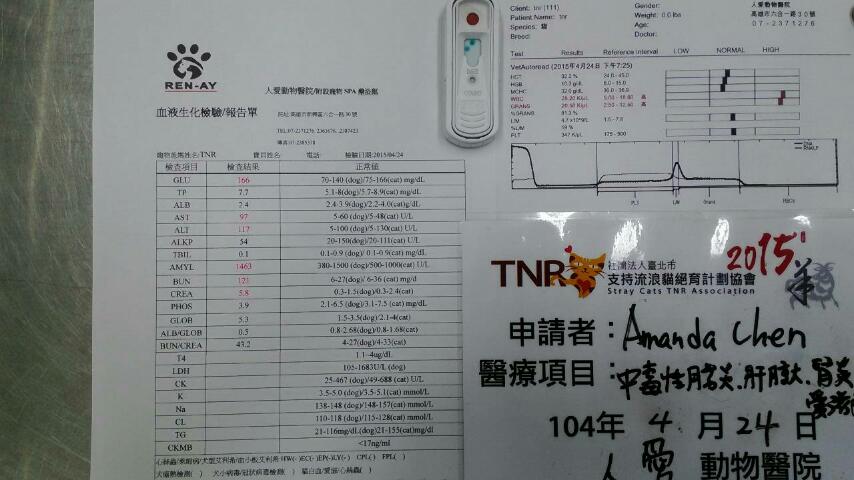 REN-AY
人愛動物醫院/附設寵物 SPA 樂活館
血液生化檢驗/報告單
TNR 寶貝姓名: 電話: 檢驗日期:2015/04/24
檢查項目 檢查結果 正常值
GLU 166 70-140 (dog)/75-166(cat) mg/dL
TP 7.7 5.1-8(dog)/5.7-8.9(cat) mg/dL
ALB 2.4 2.4-3.9(dog)/2.2-4.0(cat)g/dL
AST 97 5-60 (dog)/5-48(cat) U/L
ALT 117 5-100 (dog)/5-130(cat) U/L
ALKP 54 20-150(dog)/20-111(cat) U/L
TBIL 0.1 0.1-0.9 (dog)/ 0.1-0.9(cat) mg/dL
AMYL 1463 380-1500 (dog)/500-1000(cat) U/L
BUN 121 6-27(dog)/ 6-36 (cat) mg/d
CREA 5.8 0.3-1.5(dog)/0.3-2.4(cat)
PHOS 3.9 2.1-6.5 (dog)/3.1-7.5 (cat) mg/dL
GLOB 5.3 1.5-3.5(dog)/2.1-4(cat)
ALB/GLOB 0.5 0.8-2.68(dog)/0.8-1.68(cat)
BUN/CREA 43.2 4-27(dog)/4-33(cat)
T4 1.1-4ug/dL
LDH 105-1683U/L (dog)
CK 25-467 (dog)/49-688 (cat) U/L
K 3.5-5.0 (dog)/3.5-5.1(cat) mmol/L
Na 138-148 (dog)/148-157(cat) mmol/L
CL 110-118 (dog)/115-128(cat) mmol/L
TG 21-116mg/dL(dog)21-155(cat)mg/dl
CKMB <17ng/ml
Client: tnr (111) Gender: 人愛動物醫院
Patient Name: tnr Weight: 0.0 lbs 高雄市六合一路30號
Species: 貓 Age: 07-2371276
Breed: Doctor:
Test Results Reference Interval LOW NORMAL HIGH
VetAutoread (2015年4月24日 下午7:25)
HCT
HGB
MCHC
WBC
GRANS
%GRANS
L/M
%L/M
PLT
2015 羊
TNR 社團法人臺北市
支持流浪貓絕育計劃協會
Stray Cats TNR Association
申請者：Amanda Chen
醫療項目：中毒性腎炎.肝腫大.胃炎
104年 4 月 24 日
人 愛 動物醫院